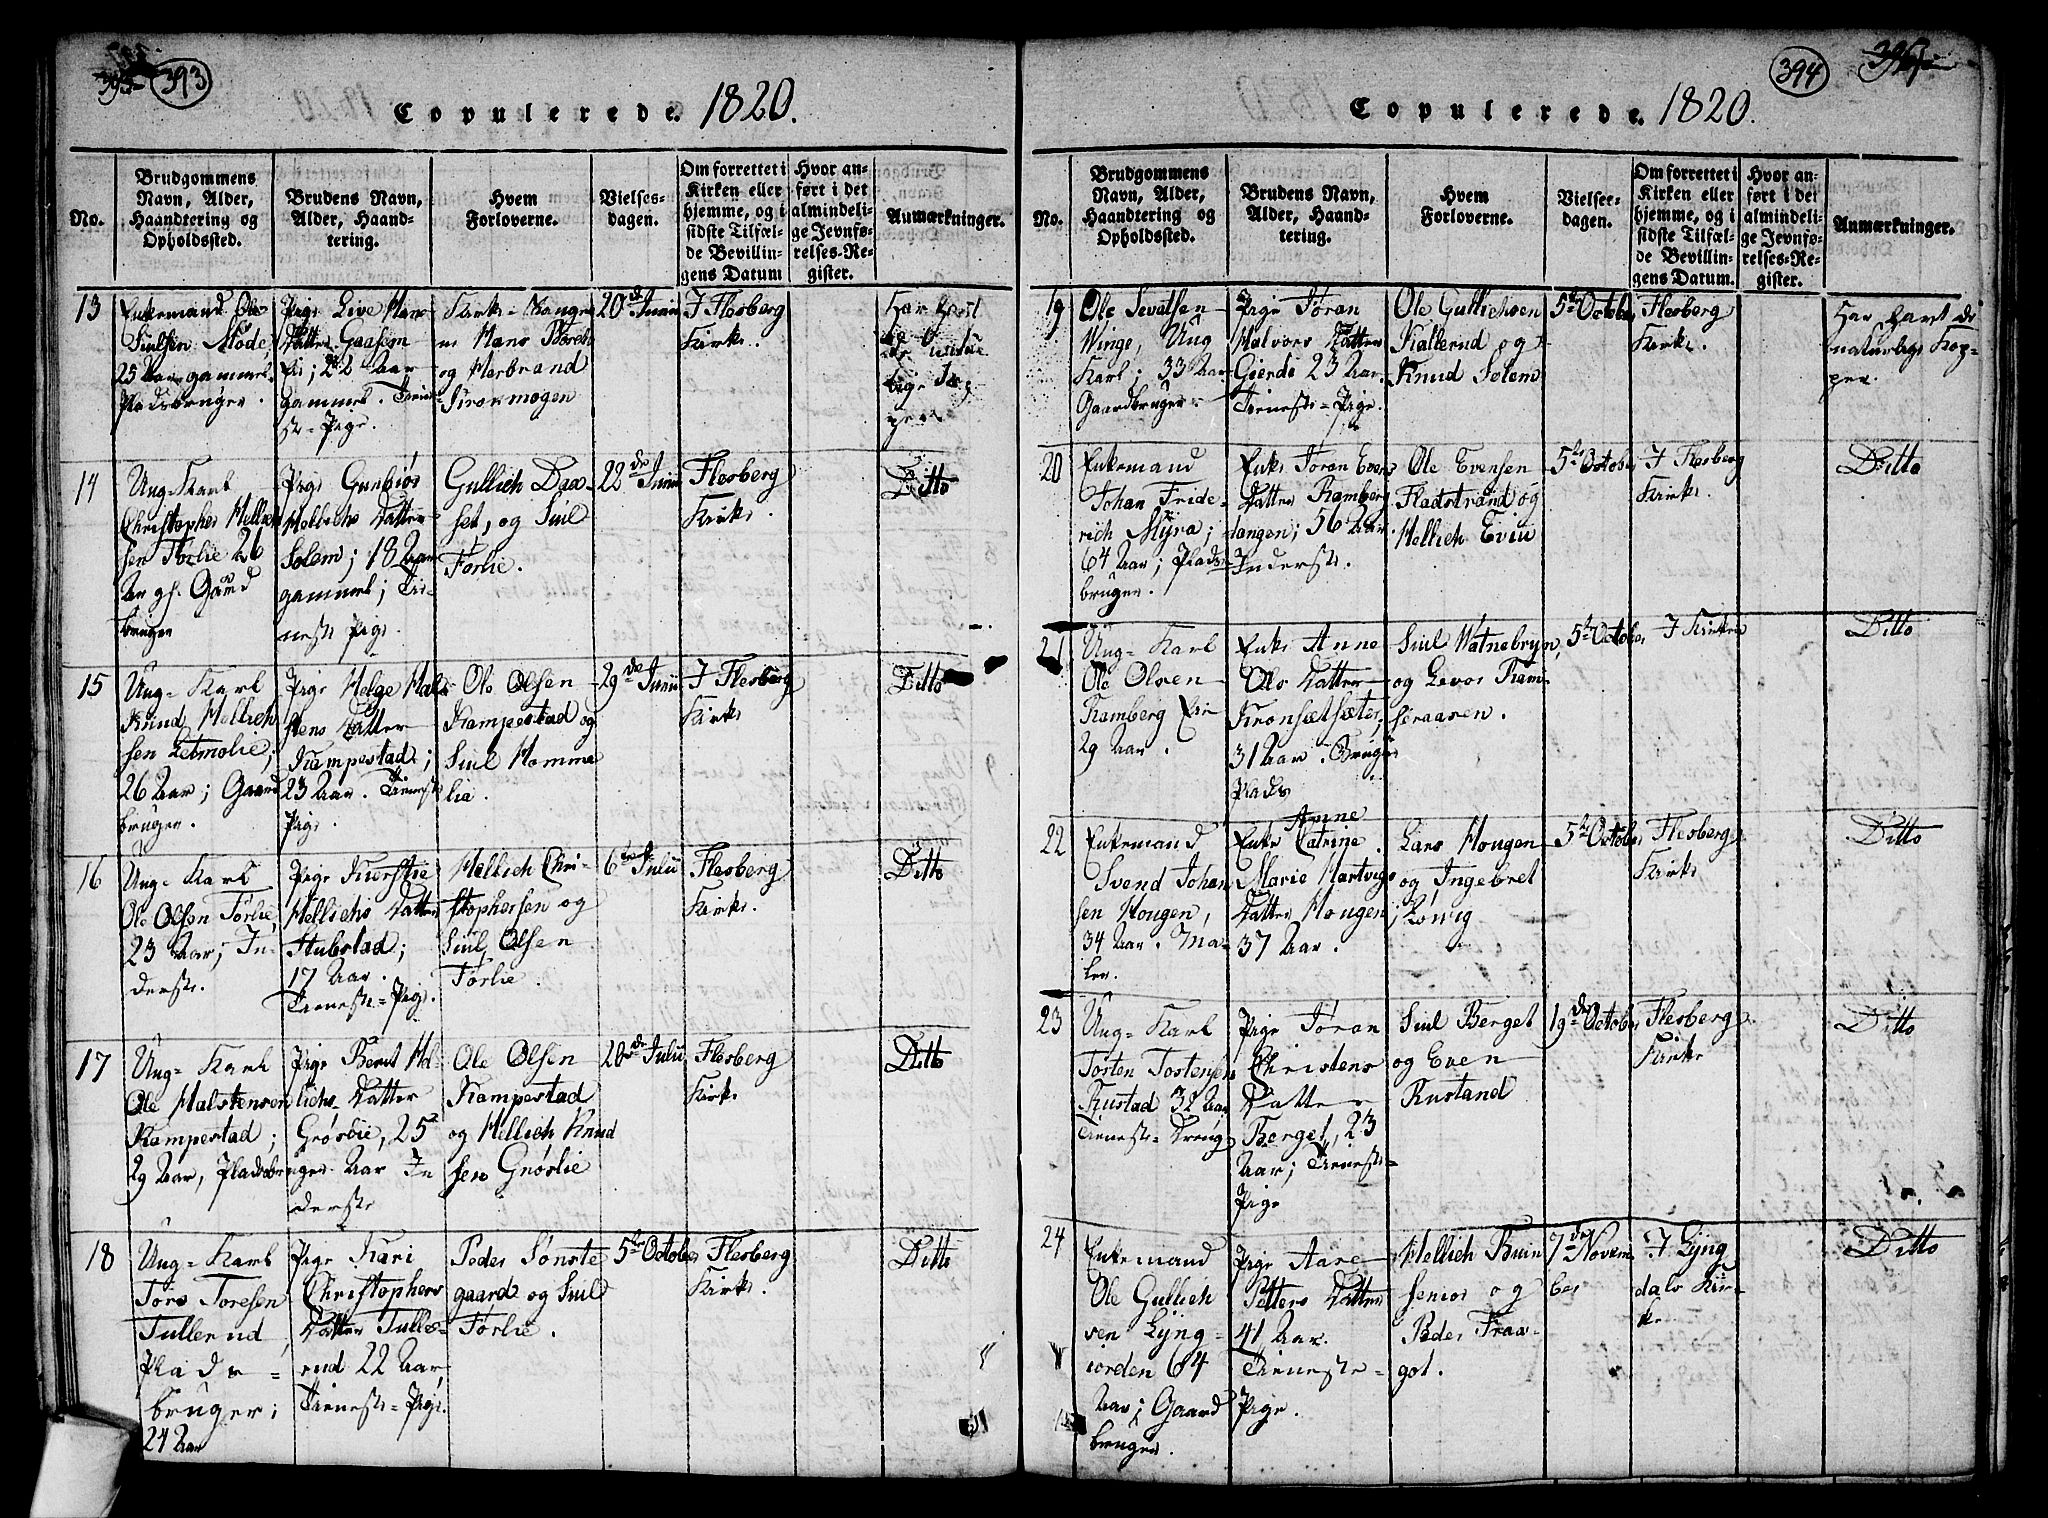 393
Copulerede. 1820.
No.
Brudgommens
Navn, Alder,
Haandtering og
Opholdssted.
Brudens Navn,
Alder, Haand-
tering.
Hvem
Forloverne.
Vielses-
dagen.
Om forrettet i
Kirken eller
hjemme, og i
sidste Tilfæl-
de Bevillin-
gens Datum
Hvor an-
ført i det
almindeli-
ge Jevnfø-
relses-Re-
gister.
Anmærkninger.
13
Enkemand Ole
Siulsen Mode,
25 Aar gammel
Pladsbruger.
Pige Live Hans
Datter Gaasem
22 Aar
gammel. Tiene-
ste-Pige.
Kirke-Sanger
Hans Boreh
og Herbrand
Kromogen
20de Junii
I Flesberg
Kirke.
Har havt
de natur
lige Kop
per
14
Ung-Karl
Christopher Hellich
sen Førlie 26
Aar gl. Gaard
bruger
Pige Gunbiør
Hellichs Datter
Solem; 18 Aar
gammel; Tie-
neste Pige.
Gullich Daa-
set, og Siul
Førlie.
22de Junii
Flesberg
Kirke.
Ditto
15
Ung-Karl
Knud Hellich
sen Letmolie;
26 Aar; Gaard
bruger.
Pige Helge Hal-
stens Datter
Kampestad;
23 Aar. Tieneste
Pige.
Ole Olsen
Kampestad og
Siul Homme
lia.
29de Junii
I Flesberg
Kirke
Ditto
16
Ung-Karl
Ole Olsen Førlie,
23 Aar; In-
derste.
Pige Kierstie
Hellichs Datter
Stubstad;
17 Aar.
Tieneste-Pige.
Hellich Chri-
stophersen og
Siul Olsen
Førlie.
6te Julii
Flesberg
Kirke.
Ditto
17
Ung-Karl
Ole Halstensen
Kampestad;
29 Aar, Pladsbruger.
Pige Berit Hel-
lichs Datter
Grøslie, 25
Aar In
derste
Ole Olsen
Kampestad
og Hellich Knud
sen Grøslie
20de Julii
Flesberg
Kirke
Ditto
18
Ung-Karl
Tore Toresen
Tullerud,
Plads-
bruger;
24 Aar
Pige Kari
Christophers
Datter Tulle-
rud 22 Aar,
Tieneste-Pige.
Peder Sønste
gaard og Siul
Førlie.
5te October
Flesberg
Kirke.
Ditto
394
Copulerede. 1820.
No.
Brudgommens
Navn, Alder,
Haandtering og
Opholdssted.
Brudens Navn,
Alder, Haand-
tering.
Hvem
Forloverne.
Vielses-
dagen.
Om forrettet i
Kirken eller
hjemme, og i
sidste Tilfæl-
de Bevillin-
gens Datum.
Hvor an-
ført i det
almindeli-
ge Jevnfø-
relses-Re-
gister.
Anmærkninger.
19
Ole Sevalsen
Winge, Ung
Karl; 33 Aar
Gaardbruger.
Pige Jøran
Halvors Datter
Gierde 23 Aar.
Tieneste-Pige.
Ole Gullichsen
Kallerud og
Knud Solem
5te October
Flesberg
Kirke.
Har havt di
naturlige Kop-
per.
20
Enkemand
Johan Fride-
rich Myra;
64 Aar; Plads-
bruger.
Enke Jøran Evens
Datter Ramberg
tangen; 56 Aar.
Inderste.
Ole Evensen
Fladstrand og
Hellich Eviu
5te October
I Flesberg
Kirke.
Ditto
21
Ung-Karl
Ole Olsen
Ramberg Eie
29 Aar.
Enke Anne
Ols Datter
Kronsætsæter,
31 Aar. Bruger
Plads
Siul Watnebryn,
og Levor Ram-
seraasen.
5te October
I Kirken
Ditto
22
Enkemand
Svend Johan
sen Hougen,
34 Aar. Ma-
ler.
Anne
Enke Catrine
Marie Hartvigs
Datter Hougen;
37 Aar.
Lars Hougen
og Ingebret
Løvig
5te October
Flesberg
Kirke
Ditto
23
Ung-Karl
Tosten Tostensen
Rustad 32 Aar
Tieneste-Dreng
Pige Jøran
Christens
Datter
Berget, 23
Aar; Tieneste-
Pige
Siul Berget
og Even
Rustand
19de October
Flesberg
Kirke
Ditto
24
Enkemand
Ole Gullich
sen Lyng-
iorden 64
Aar; Gaard
bruger.
Pige Aare
Petters Datter
41 Aar.
Tieneste-
Pige.
Hellich Bruin
senior og
Peder Fraa-
got.
7de Novem
ber
I Lyng
dals Kir-
ke.
Ditto